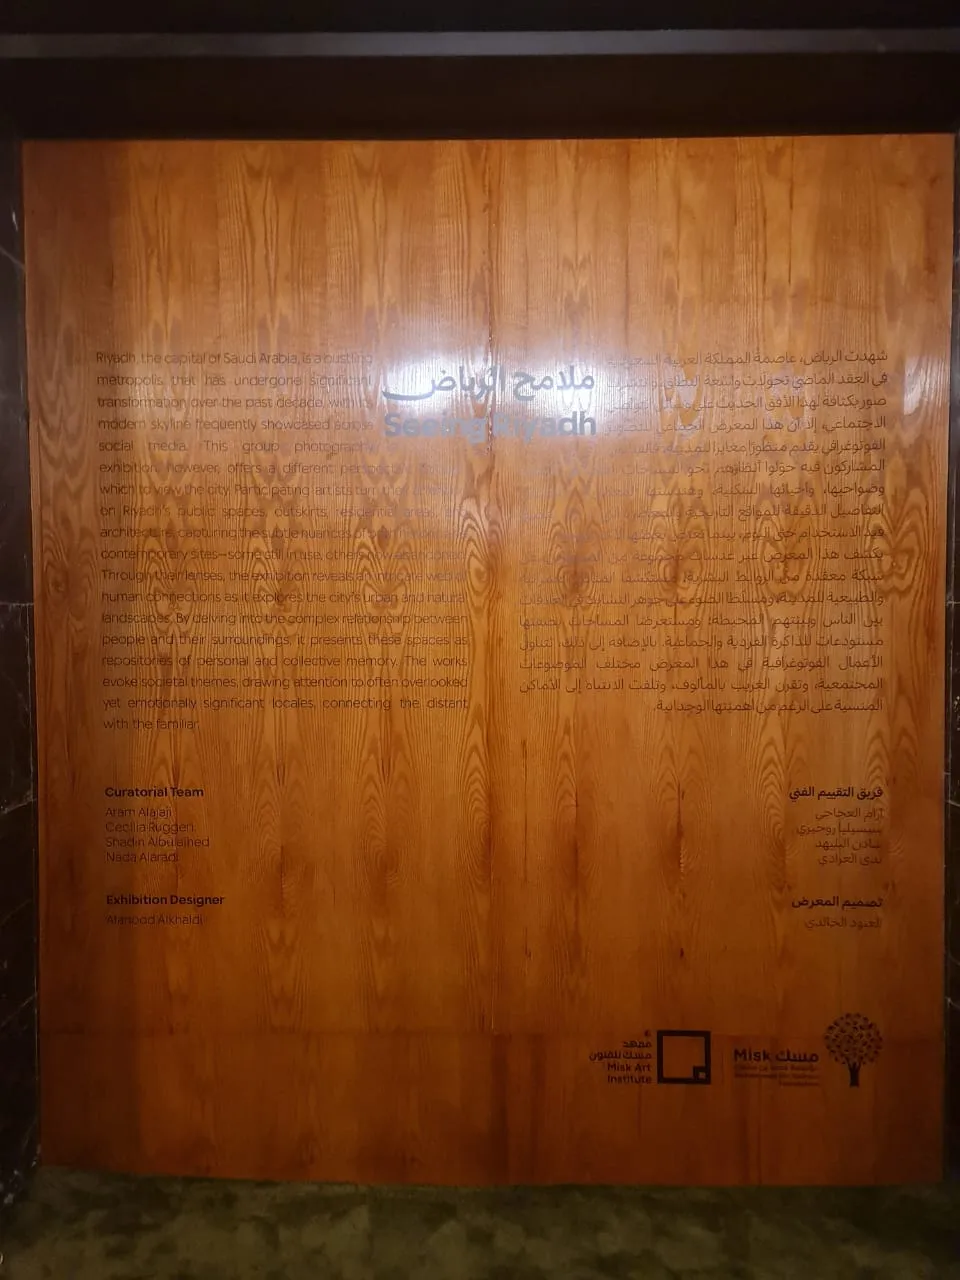 ملامح الرياض
Seeing Riyadh
Riyadh, the capital of Saudi Arabia, is a bustling
metropolis that has undergone significant
transformation over the past decade, with its
modern skyline frequently showcased across
social media. This group photography
exhibition, however, offers a different perspective
which to view the city. Participating artists turn their
on Riyadh's public spaces, outskirts, residential areas, and
architecture, capturing the subtle nuances of
contemporary sites—some still in use, others now abandoned.
Through their lenses, the exhibition reveals an intricate web of
human connections as it explores the city's urban and natural
landscapes. By delving into the complex relationship between
people and their surroundings, it presents these spaces as
repositories of personal and collective memory. The works
evoke societal themes, drawing attention to often overlooked
yet emotionally significant locales, connecting the distant
with the familiar.
شهدت الرياض، عاصمة المملكة العربية السعودية،
في العقد الماضي تحولات واسعة النطاق،
صور بكثافة لهذا الأفق الحديث على وسائل التواصل
الاجتماعي، إلا أن هذا المعرض الجماعي للتصوير
الفوتوغرافي يقدم منظورًا مغايرًا للمدينة،
المشاركون فيه حولوا أنظارهم نحو المساحات
وضواحيها، وأحيائها السكنية، وهندستها
التفاصيل الدقيقة للمواقع التاريخية والمعاصرة
قيد الاستخدام حتى اليوم، بينما
يكشف هذا المعرض عبر عدسات مجموعة من
شبكة معقدة من الروابط البشرية، مستكشفًا
والطبيعية للمدينة، ومسلطًا الضوء على جوهر التشابك في العلاقات
بين الناس وبيئتهم المحيطة؛ ومستعرضًا المساحات بصفتها
مستودعات للذاكرة الفردية والجماعية. بالإضافة إلى ذلك، تتناول
الأعمال الفوتوغرافية في هذا المعرض مختلف الموضوعات
المجتمعية، وتقرن الغريب بالمألوف، وتلفت الانتباه إلى الأماكن
المنسية على الرغم من أهميتها الوجدانية.
Curatorial Team
Aram Alajaji
Cecilia Ruggeri
Shadin Albulaihed
Nada Alaradi
Exhibition Designer
Alanood Alkhaldi
فريق التقييم الفني
آرام العجاجي
سيسيليا روجيري
شادن البليهد
ندى العرادي
تصميم المعرض
العنود الخالدي
معهد
مسك للفنون
Misk Art
Institute
Misk مسك